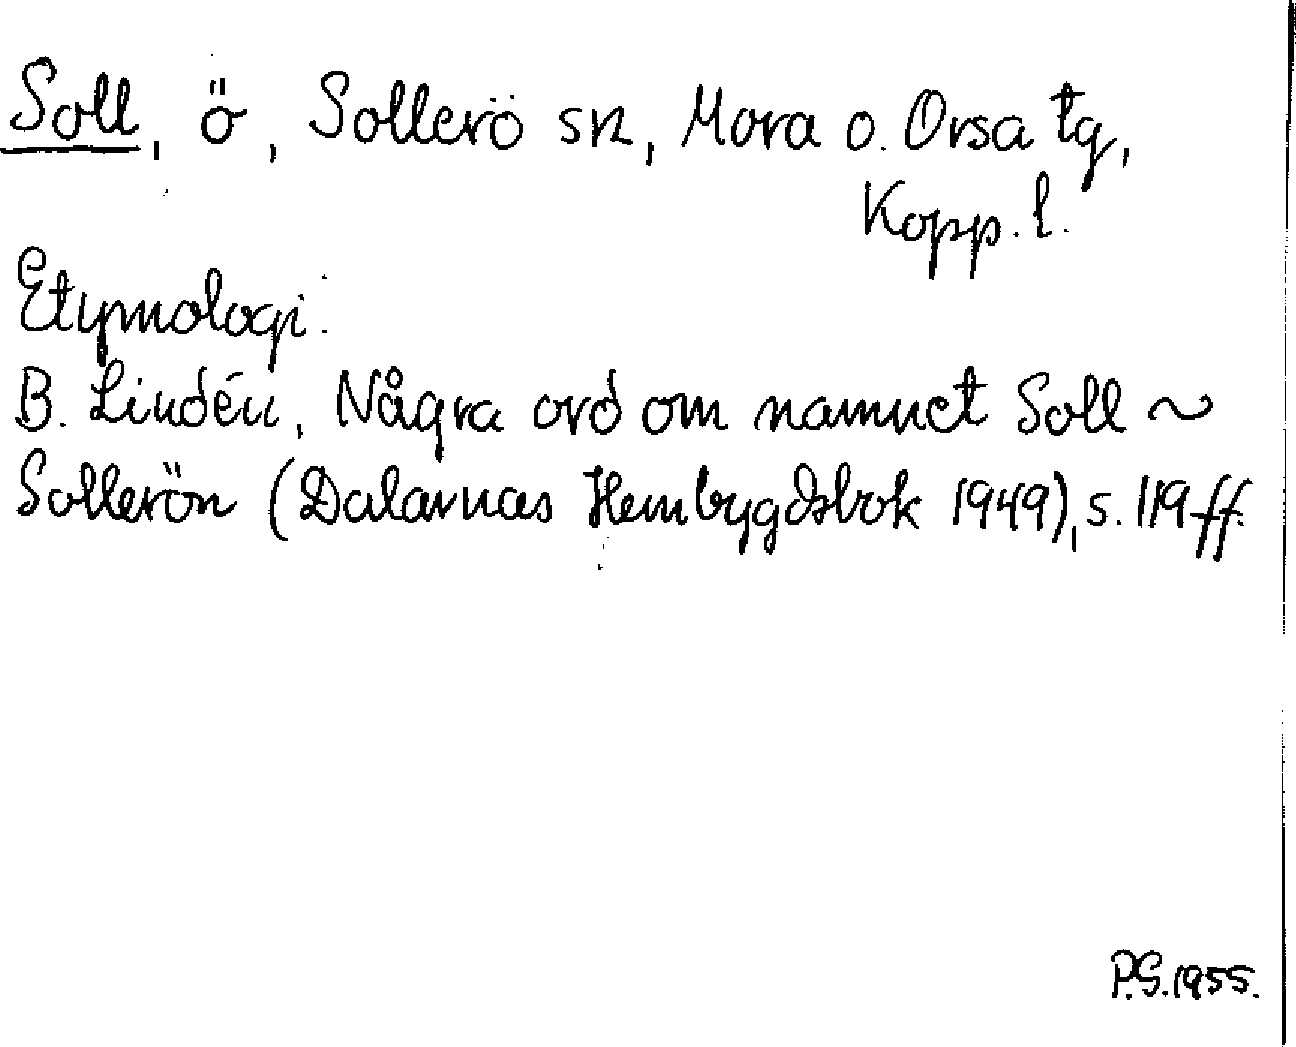 Soll, ö, Sollerö sn, Mora o. Orsa tg,
Kopp. l.
Etymologi:
B. Lindén, Några ord om namnet Soll ~
Sollerön (Dalarnas Hembygdsbok 1949), s. 119 ff.
P.G. 1955.